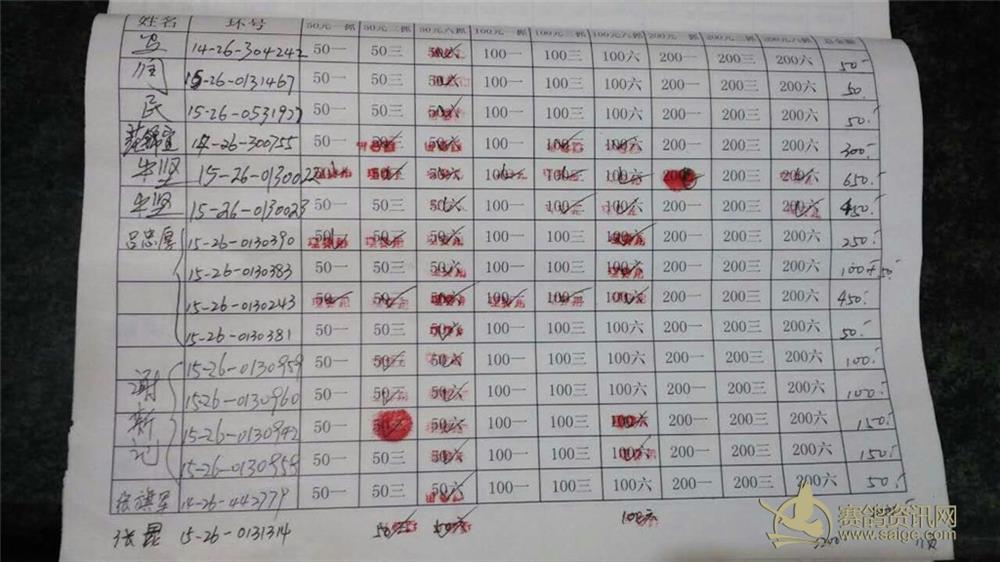 姓名 环号 50元一抓 50元三抓 50元六抓 100元一抓 100元三抓 100元六抓 200元一抓 200元三抓 200元六抓 总金额
14-26-304242 50一 50三 50六 100一 100三 100六 200一 200三 200六 50.-
15-26-0131467 50一 50三 50六 100一 100三 100六 200一 200三 200六 50.
民 15-26-0531927 50一 50三 50六 100一 100三 100六 200一 200三 200六 50.-
14-26-300755 50一 50三 50六 100一 100三 100六 200一 200三 200六 300.-
牟坚 15-26-0130022 50一 50三 50六 100一 100三 100六 200一 200三 200六 650.-
牟坚 15-26-0130023 50一 50三 50六 100一 100三 100六 200一 200三 200六 450.-
吕忠厚 15-26-0130390 50一 50三 50六 100一 100三 100六 200一 200三 200六 250.-
15-26-0130383 50一 50三 50六 100一 100三 100六 200一 200三 200六 100+50.-
15-26-0130243 50一 50三 50六 100一 100三 100六 200一 200三 200六 450.-
15-26-0130381 50一 50三 50六 100一 100三 100六 200一 200三 200六 50.-
15-26-0130959 50一 50三 50六 100一 100三 100六 200一 200三 200六 100.-
谢 15-26-0130960 50一 50三 50六 100一 100三 100六 200一 200三 200六 100.-
新 15-26-0130942 50一 50三 50六 100一 100三 100六 200一 200三 200六 150.-
记 15-26-0130958 50一 50三 50六 100一 100三 100六 200一 200三 200六 150.-
14-26-442779 50一 50三 50六 100一 100三 100六 200一 200三 200六 50.-
张昆 15-26-0131314 50三 50六 100六
赛鸽资讯网
www.saige.com